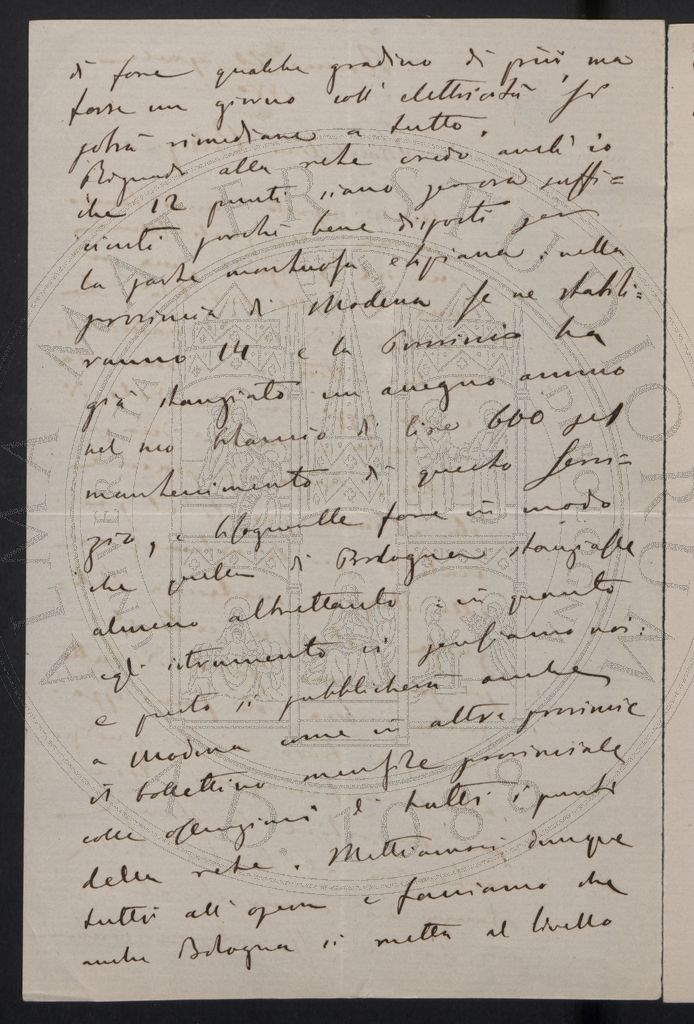 di fare qualche gradino di più, ma
forse un giorno coll' elettricità si
potrà rimediare a tutto.
Riguardo alla rete credo anch' io
che 12 punti siano per ora suffi=
cienti purchè bene disposti per
la parte montuosa e la piana: nella
provincia di Modena se ne stabili=
ranno 14 e la Provincia ha
già stanziato un assegno annuo
nel suo bilancio di lire 600 pel
mantenimento di questo Servi=
zio, e bisognerebbe fare in modo
che quella di Bologna stanziasse
almeno altrettanto: in quanto
agli istrumenti ci pensiamo noi:
e presto si pubblicherà anche
a Modena come in altre provincie
il bollettino mensile provinciale
colle osservazioni di tutti i punti
della rete. Mettiamoci dunque
tutti all' opera e facciamo che
anche Bologna si metta al livello
ALMA MATER STUDIORUM
A.D. 1088